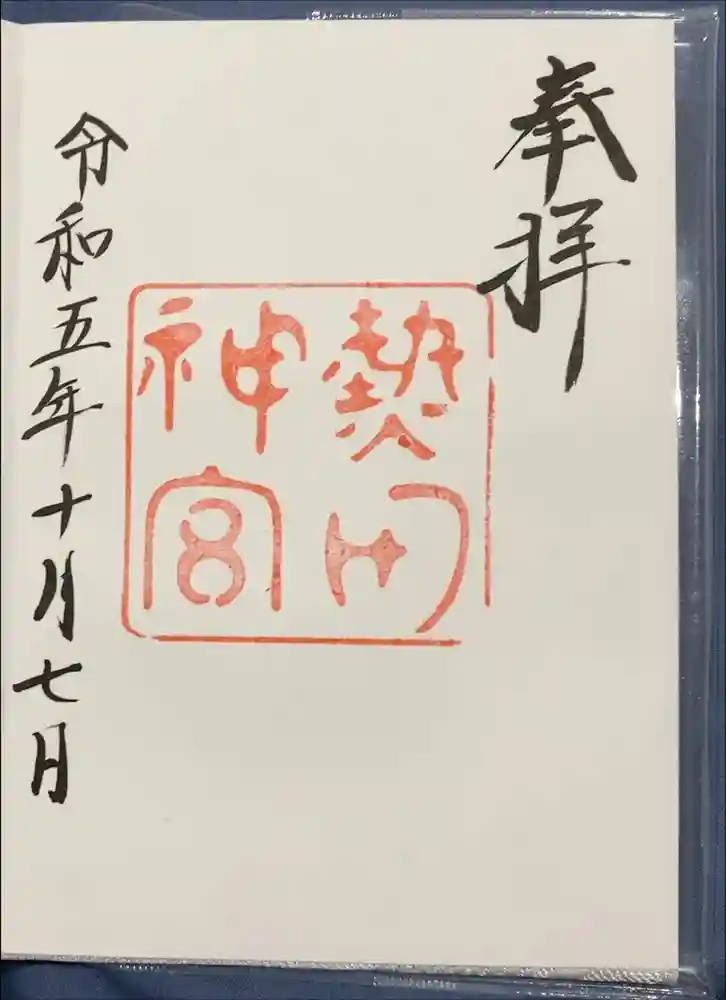 奉拝
熱田
神宮
令和五年十月七日